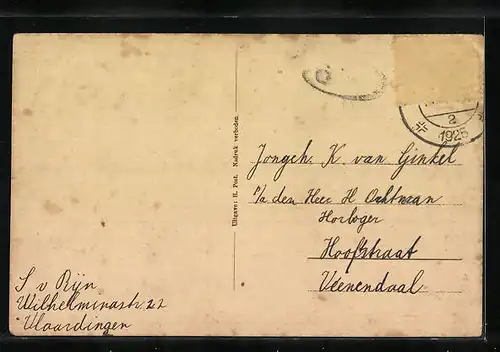 2
1925
Jongeh. K. van Ginkel
p/a den Heer H Ochtman
Horloger
Hoofstraat
Veenendaal
Uitgave: H. Post. Nadruk verboden.
S v Rijn
Wilhelminastr. 22
Vlaardingen